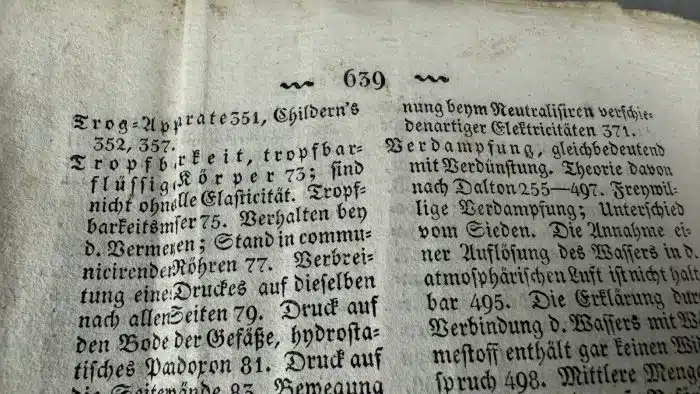 639
Trog-Apparate 351, Childern's
352, 357.
Tropfbarkeit, tropfbar-
flüssige Körper 73; sind
nicht ohne alle Elasticität. Tropf-
barkeitsmesser 75. Verhalten bey
d. Stand in commu-
nicirenden Röhren 77. Verbrei-
tung eines Druckes auf dieselben
nach allen Seiten 79. Druck auf
den Boden der Gefäße, hydrosta-
tisches Paradoxon 81. Druck auf
die Seitenwände 83. Bewegung
nung beym Neutralisiren verschie-
denartiger Elektricitäten 371.
Verdampfung, gleichbedeutend
mit Verdünstung. Theorie davon
nach Dalton 255—497. Freywil-
lige Verdampfung; Unterschied
vom Sieden. Die Annahme ei-
ner Auflösung des Wassers in d.
atmosphärischen Luft ist nicht halt
bar 495. Die Erklärung dur
Verbindung d. Wassers mit W
mestoff enthält gar keinen Wi
spruch 498. Mittlere Menge